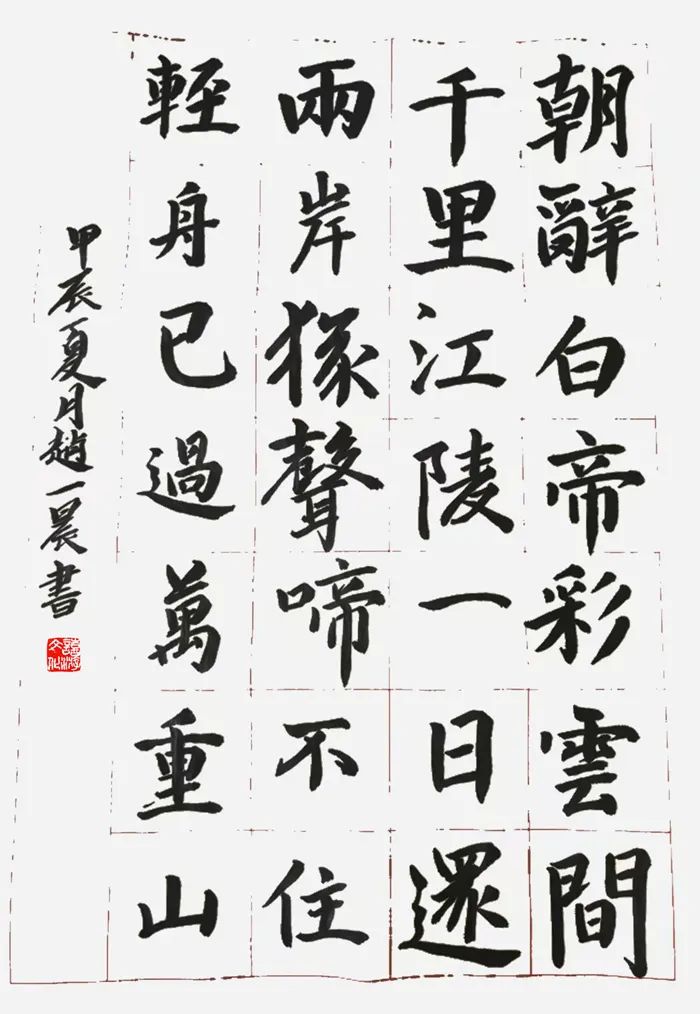 朝辭白帝彩雲間
千里江陵一日還
兩岸猨聲啼不住
輕身已過萬重山
甲辰夏月趙一晨書